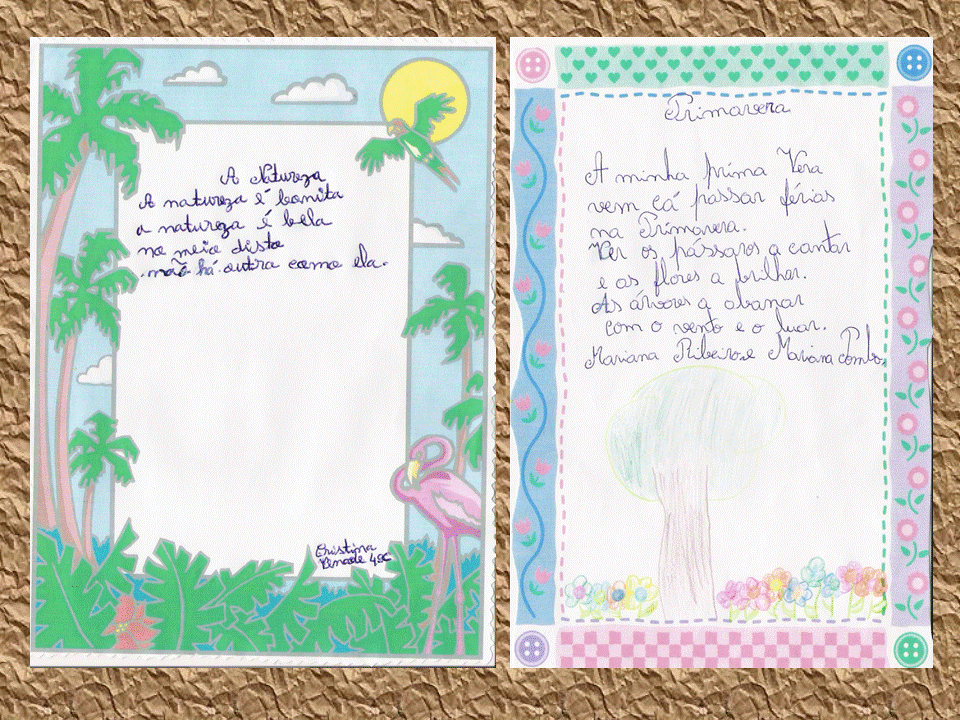 A Natureza
A natureza é bonita
a natureza é bela
no meio disto
não há outra como ela.
Cristina
4ºC
Primavera
A minha prima Vera
vem cá passar férias
na Primavera.
Ver os pássaros a cantar
e as flores a brilhar.
As árvores a abanar
com o vento e o luar.
Mariana Ribeiro e Mariana Pombo